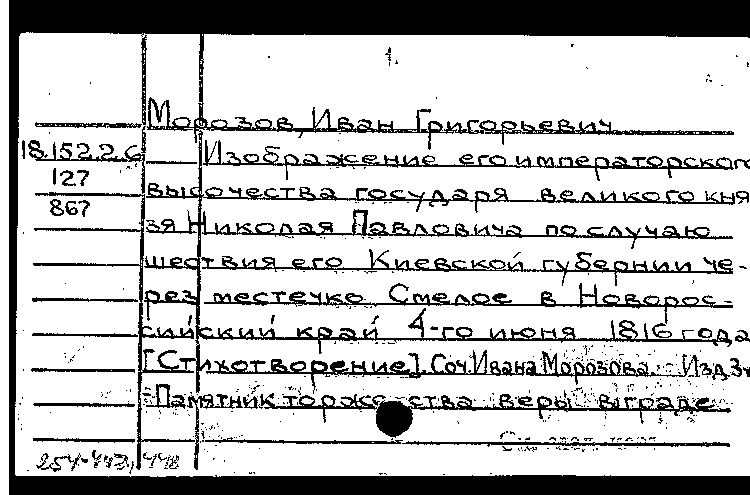 1.
Морозов, Иван Григорьевич
18.152.2.6 Изображение его императорского
127 высочества государя великого кня
867
зя Николая Павловича по случаю
шествия его Киевской губернии че-
рез местечко Смелое в Новорос-
сийский край 4-го июня 1816 года
[Стихотворение]. Соч. Ивана Морозова. - Изд. 3
Памятник торжества веры в граде
254-442, 448